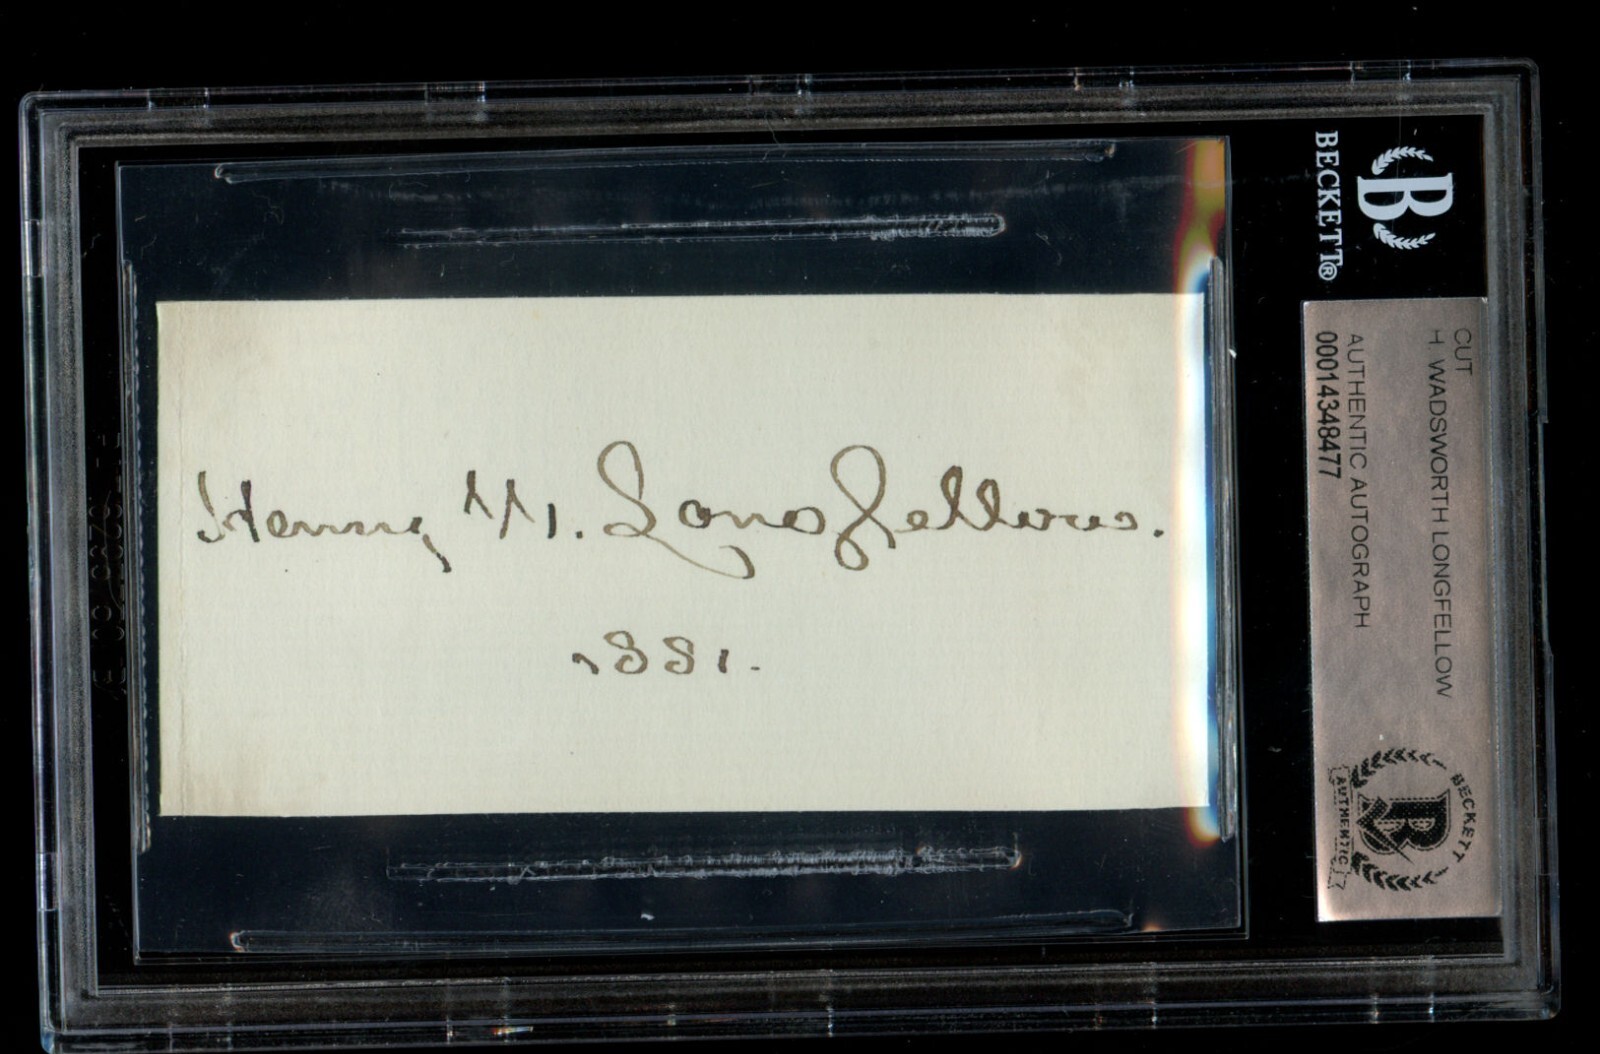 Henry W. Longfellow.
1881.
B
BECKETT®
CUT
H WADSWORTH LONGFELLOW
AUTHENTIC AUTOGRAPH
00014348477
BECKETT
B
AUTHENTIC